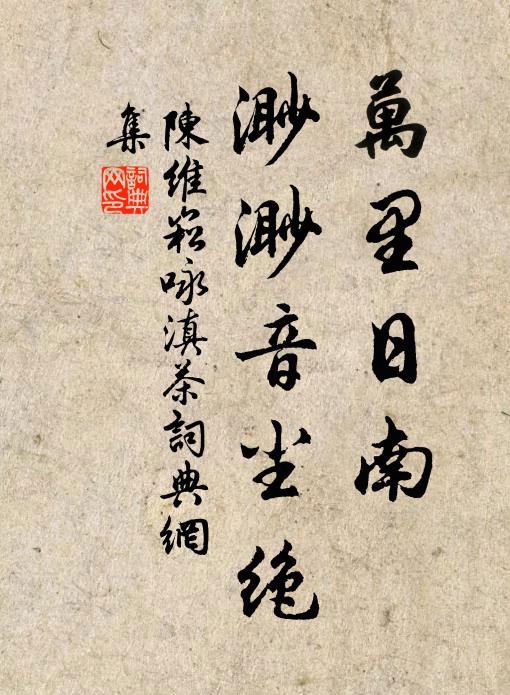 萬里日南
渺渺音尘絶
陳維崧咏滇茶詞典網
集
詞典網印